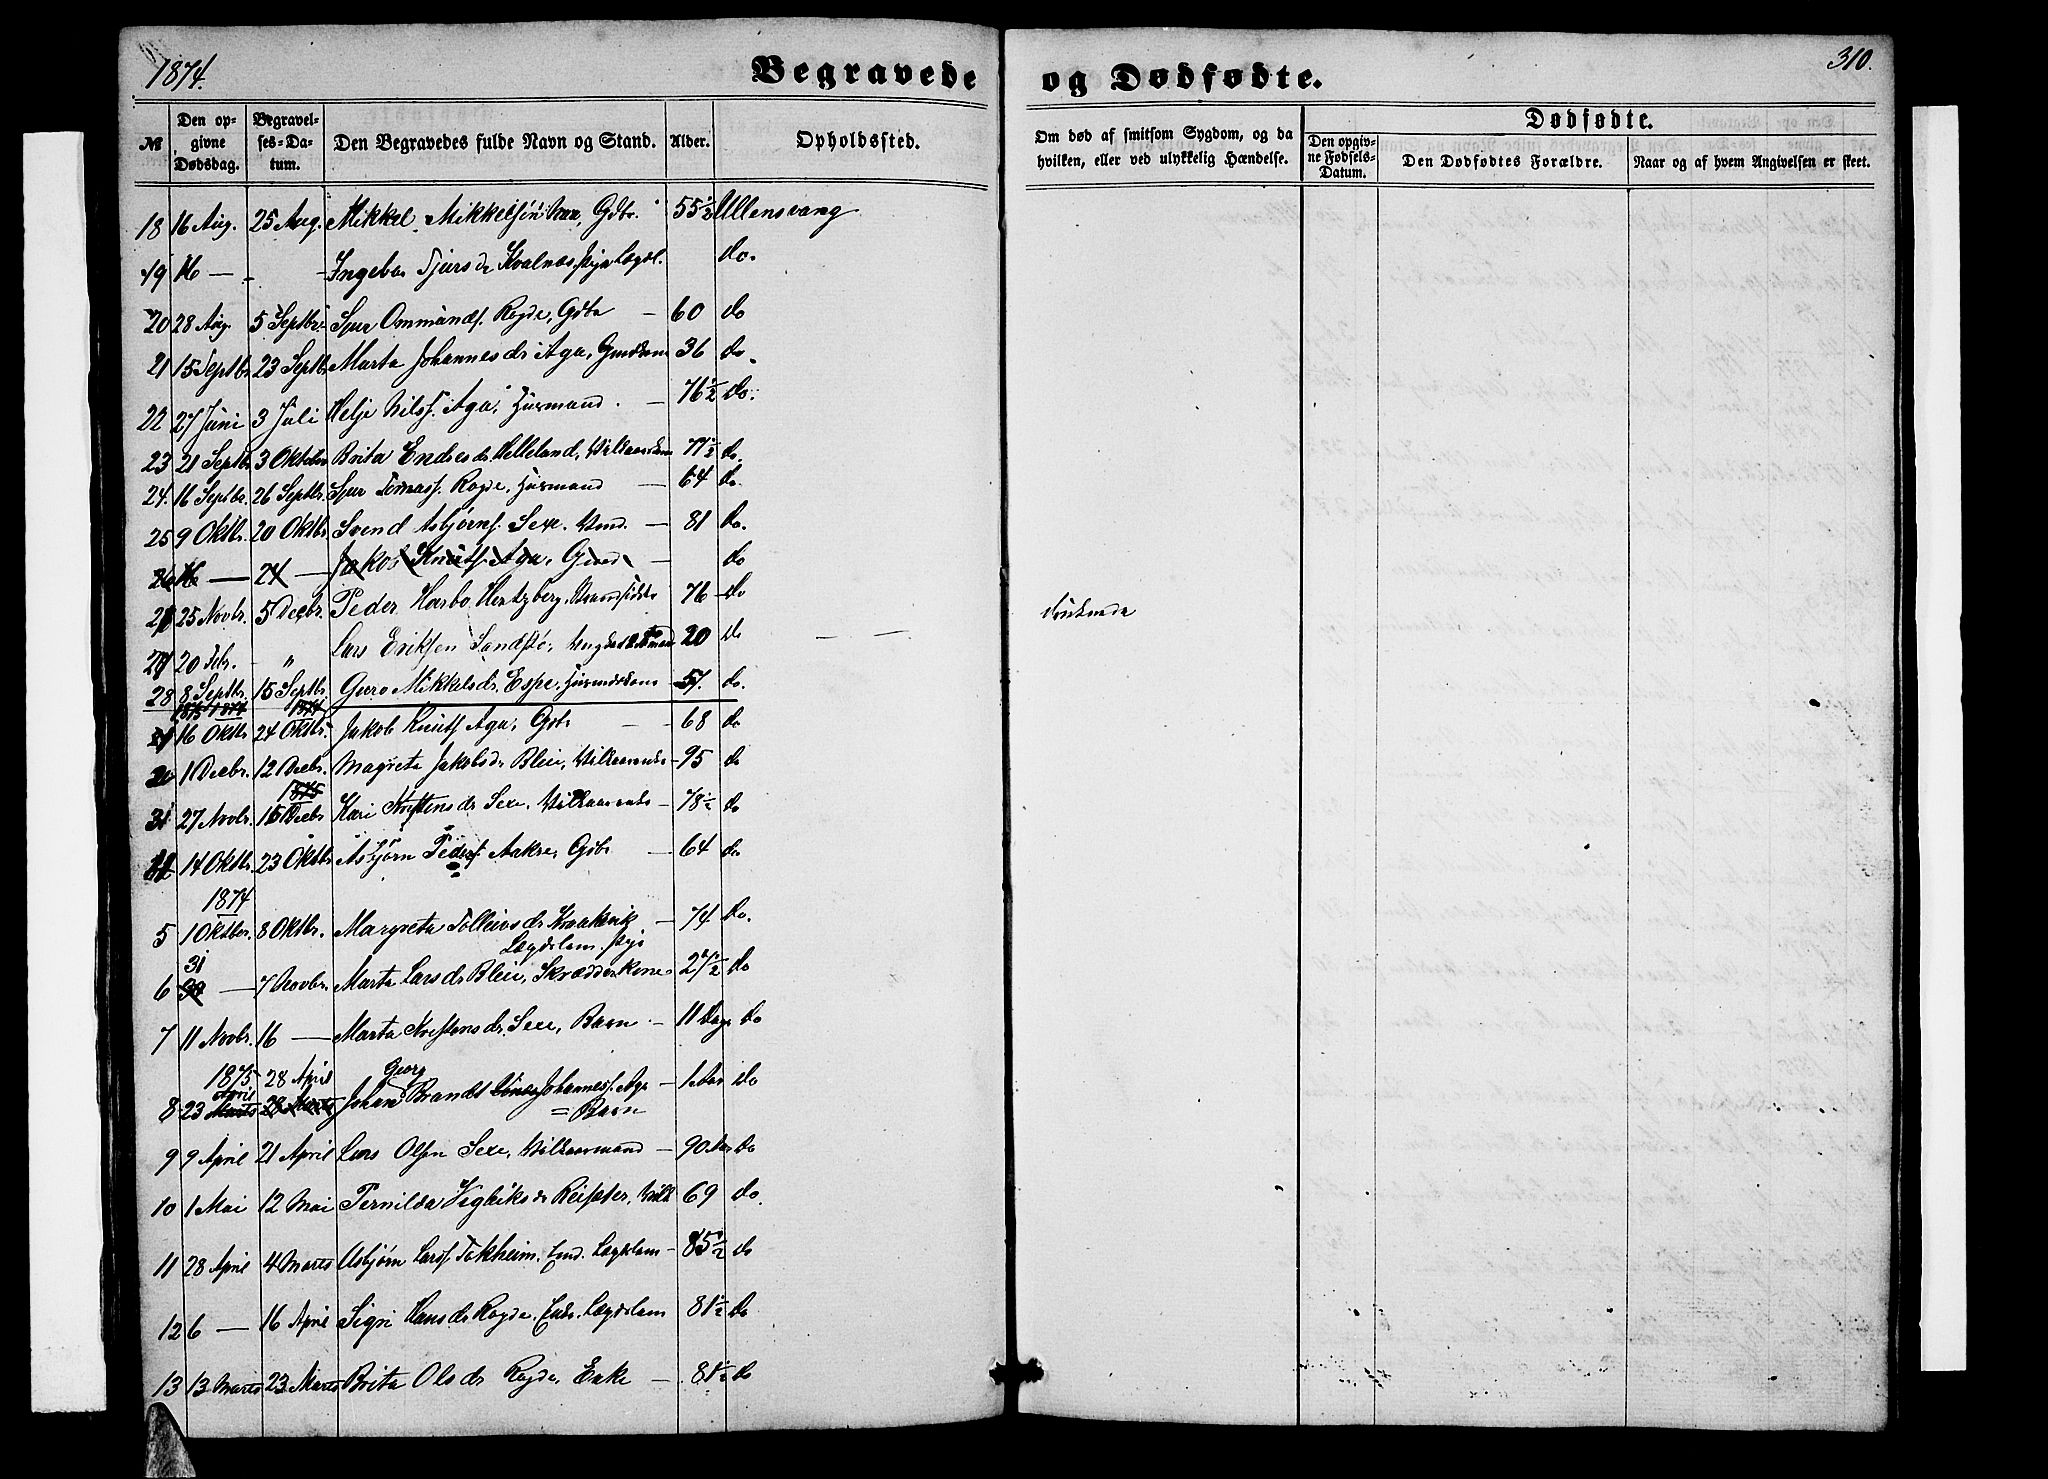 1874.
Begravede og Dødfødte.
310.
№
Den opgivne Dødsdag.
Begravelses-Datum.
Den Begravedes fulde Navn og Stand.
Alder.
Opholdssted.
Om død af smitsom Sygdom, og da hvilken, eller ved ulykkelig Hændelse.
Dødfødte.
Den opgivne Fødsels-Datum.
Den Dødfødtes Forældre.
Naar og af hvem Angivelsen er skeet.
18 16 Aug. 25 Aug. Mikkel Mikkelsøn Gdbr. 55½ Ullensvang
19 16 — - Ingebor Sjursdr Kvalnes, Lægdl. do.
20 28 Aug. 5 Septbr. Sjur Ommunds. Rogde, Gdbr — 60 do
21 15 Septbr 23 Septbr Marta Johannesdr Aga, 36 do.
22 27 Juni 3 Juli Helje Nilss. Aga, Husmand. — 76½ do.
23 21 Septbr 3 Oktober Brita Endresdr Helleland, 77½ do.
24. 16 Septbr 26 Septbr. Sjur Tomass. Rogde, Husmand — 64 do.
25 9 Oktbr. 20 Oktbr. Svend Asbjørns. Sexe. — 81 do.
26 16 — 24 — Jakob Knuts. Aga, — do
25 Novbr. 5 Decbr. Peder Harbo Hertzberg, 76 do
20 Febr. " Lars Eriksen Sandstø, 20 do
28 8 Septbr. 15 Septbr. Guro Mikkelsdr. Espe, 57. do.
1875 1874 1874
16 Oktbr 24 Oktbr. Jakob Knuts Aga, Gdbr — 68 do
1 Decbr. 12 Decbr. Magreta Jakobsdr Bleie, 95 do
1875
31 27 Novbr. 15 Decbr Kari Kristensdr Sexe, 78½ do
14 Oktbr. 23 Oktbr Asbjørn Peders. Aakre, Gdbr — 64 do
1874
5 1 Oktber. 8 Oktbr. Margreta Tolleivsdr — 74 do.
Lægdslem.
31
6 30 — 7 Novbr. Marta Larsdr Bleie, Skrædderkone 27½ do
7 11 Novbr. 16 — Marta Kristensdr. Sexe, Barn — 11 Dage do
1875 28 April Georg
8 23 April Marts 28 Marts Johan Brandt Johanness. Aga — 1 Aar do
= Barn
9 9 April 21 April Lars Olsen Sexe, Vilkaarmand — 90 Aar do
10 1 Mai 12 Mai Pernilda Vigleiksdr Reisæter, Vilk 69 do.
11 28 April 4 Marts Asbjørn Larss. Tokheim, Lægdslem — 85½ do
12 6 — 16 April Sigri Hansdr Rogde, Enke, Lægdslem 81½ do
13 13 Marts 23 Marts Brita Olsdr Rogde, Enke — 81½ do